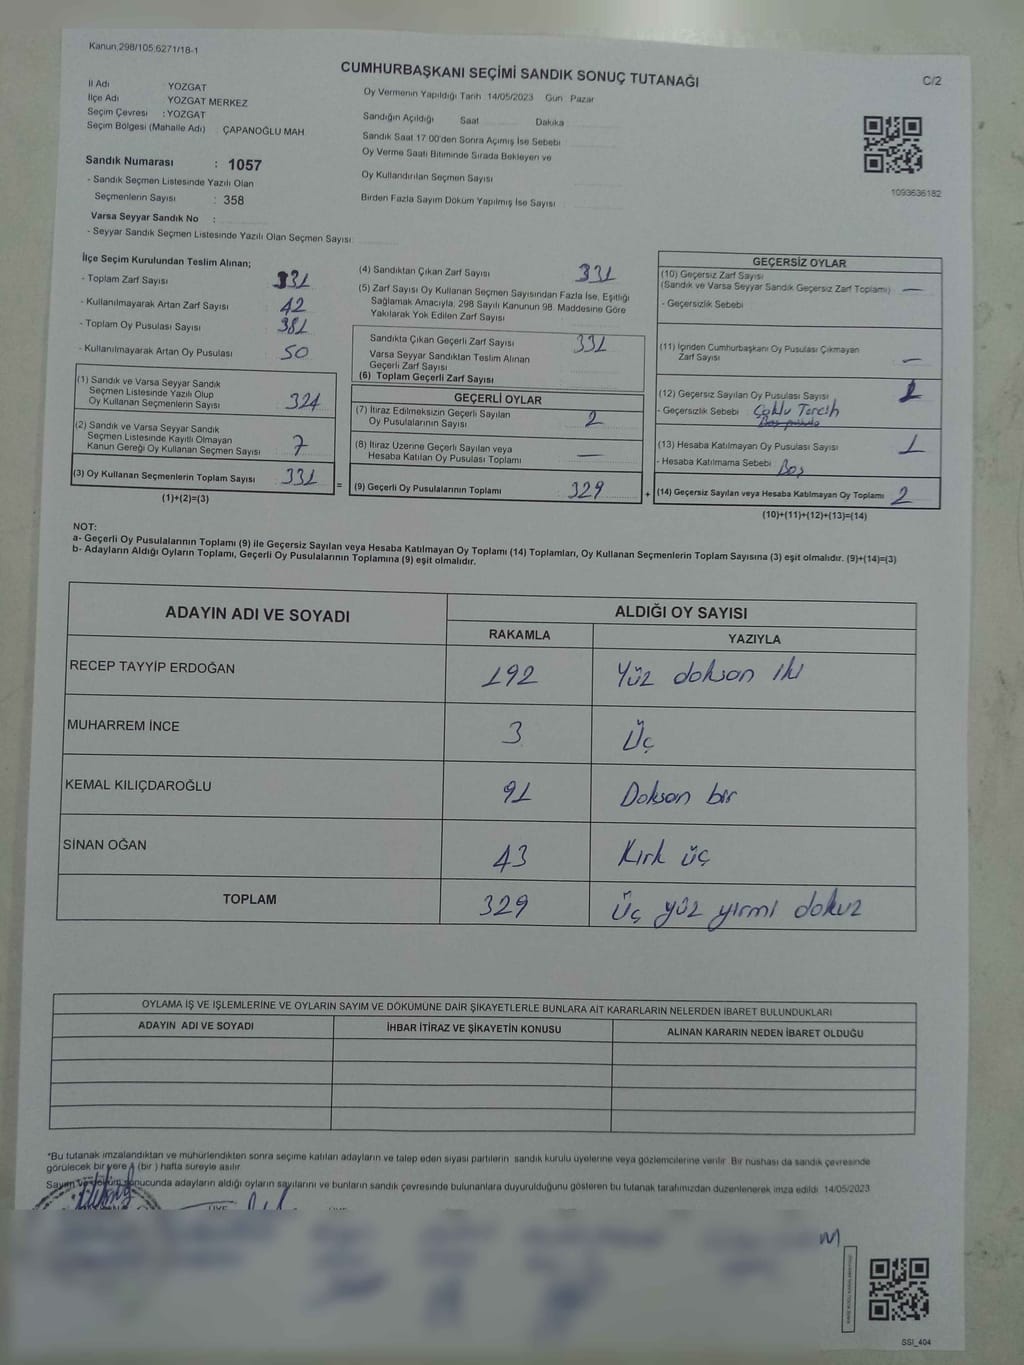 Kanun;298/105;6271/18-1
CUMHURBAŞKANI SEÇİMİ SANDIK SONUÇ TUTANAĞI
C/2
İl Adı YOZGAT
İlçe Adı YOZGAT MERKEZ
Seçim Çevresi : YOZGAT
Seçim Bölgesi (Mahalle Adı) ÇAPANOĞLU MAH
Sandık Numarası : 1057
- Sandık Seçmen Listesinde Yazılı Olan
Seçmenlerin Sayısı : 358
Varsa Seyyar Sandık No :
- Seyyar Sandık Seçmen Listesinde Yazılı Olan Seçmen Sayısı:
Oy Vermenin Yapıldığı Tarih 14/05/2023 Gün Pazar
Sandığın Açıldığı Saat Dakika
Sandık Saat 17:00'den Sonra Açımış İse Sebebi
Oy Verme Saati Bitiminde Sırada Bekleyen ve
Oy Kullandırılan Seçmen Sayısı
Birden Fazla Sayım Döküm Yapılmış İse Sayısı
1093636182
İlçe Seçim Kurulundan Teslim Alınan;
- Toplam Zarf Sayısı 331
- Kullanılmayarak Artan Zarf Sayısı 42
- Toplam Oy Pusulası Sayısı 381
- Kullanılmayarak Artan Oy Pusulası 50
(1) Sandık ve Varsa Seyyar Sandık
Seçmen Listesinde Yazılı Olup
Oy Kullanan Seçmenlerin Sayısı 324
(2) Sandık ve Varsa Seyyar Sandık
Seçmen Listesinde Kayıtlı Olmayan
Kanun Gereği Oy Kullanan Seçmen Sayısı 7
(3) Oy Kullanan Seçmenlerin Toplam Sayısı 331
(1)+(2)=(3)
=
(4) Sandıktan Çıkan Zarf Sayısı 331
(5) Zarf Sayısı Oy Kullanan Seçmen Sayısından Fazla İse, Eşitliği
Sağlamak Amacıyla, 298 Sayılı Kanunun 98. Maddesine Göre
Yakılarak Yok Edilen Zarf Sayısı
Sandıkta Çıkan Geçerli Zarf Sayısı 331
Varsa Seyyar Sandıktan Teslim Alınan
Geçerli Zarf Sayısı
(6) Toplam Geçerli Zarf Sayısı
GEÇERLİ OYLAR
(7) İtiraz Edilmeksizin Geçerli Sayılan
Oy Pusulalarının Sayısı 2
(8) İtiraz Üzerine Geçerli Sayılan veya
Hesaba Katılan Oy Pusulası Toplamı —
(9) Geçerli Oy Pusulalarının Toplamı 329
+
GEÇERSİZ OYLAR
(10) Geçersiz Zarf Sayısı
(Sandık ve Varsa Seyyar Sandık Geçersiz Zarf Toplamı) —
- Geçersizlik Sebebi
(11) İçinden Cumhurbaşkanı Oy Pusulası Çıkmayan
Zarf Sayısı —
(12) Geçersiz Sayılan Oy Pusulası Sayısı 1
- Geçersizlik Sebebi Çoklu Tercih
(13) Hesaba Katılmayan Oy Pusulası Sayısı 1
- Hesaba Katılmama Sebebi Boş
(14) Geçersiz Sayılan veya Hesaba Katılmayan Oy Toplamı 2
(10)+(11)+(12)+(13)=(14)
NOT:
a- Geçerli Oy Pusulalarının Toplamı (9) ile Geçersiz Sayılan veya Hesaba Katılmayan Oy Toplamı (14) Toplamları, Oy Kullanan Seçmenlerin Toplam Sayısına (3) eşit olmalıdır. (9)+(14)=(3)
b- Adayların Aldığı Oyların Toplamı, Geçerli Oy Pusulalarının Toplamına (9) eşit olmalıdır.
ADAYIN ADI VE SOYADI ALDIĞI OY SAYISI
RAKAMLA YAZIYLA
RECEP TAYYİP ERDOĞAN 192 Yüz doksan iki
MUHARREM İNCE 3 Üç
KEMAL KILIÇDAROĞLU 91 Doksan bir
SİNAN OĞAN 43 Kırk üç
TOPLAM 329 Üç yüz yirmi dokuz
OYLAMA İŞ VE İŞLEMLERİNE VE OYLARIN SAYIM VE DÖKÜMÜNE DAİR ŞİKAYETLERLE BUNLARA AİT KARARLARIN NELERDEN İBARET BULUNDUKLARI
ADAYIN ADI VE SOYADI İHBAR İTİRAZ VE ŞİKAYETİN KONUSU ALINAN KARARIN NEDEN İBARET OLDUĞU
*Bu tutanak imzalandıktan ve mühürlendikten sonra seçime katılan adayların ve talep eden siyasi partilerin sandık kurulu üyelerine veya gözlemcilerine verilir. Bir nüshası da sandık çevresinde
görülecek bir yere A (bir ) hafta süreyle asılır.
Sayım ve döküm sonucunda adayların aldığı oyların sayılarını ve bunların sandık çevresinde bulunanlara duyurulduğunu gösteren bu tutanak tarafımızdan düzenlenerek imza edildi. 14/05/2023
SSI_404